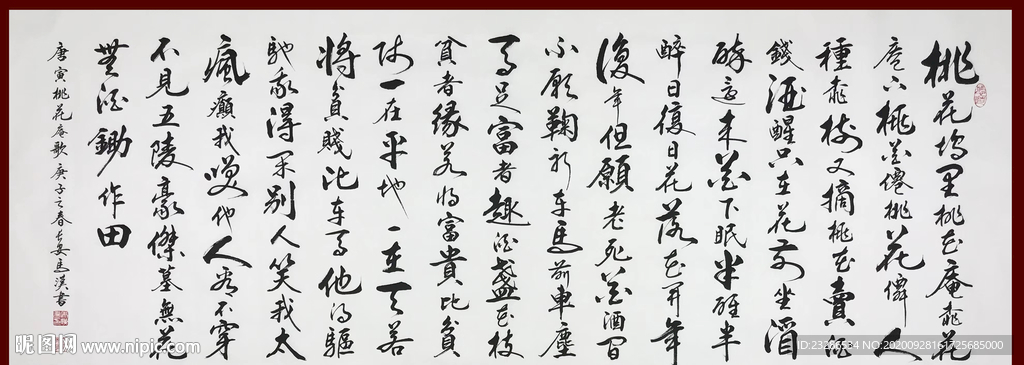 桃花坞里桃花庵桃花
庵下桃花仙桃花仙人
种桃树又摘桃花卖酒
钱酒醒只在花前坐酒
醉还来花下眠半醒半
醉日復日花落花开年
復年但愿老死花酒间
不愿鞠躬车马前車塵
马足富者趣酒盏花枝
貧者缘若将富貴比貧
賤一在平地一在天若
将貧賤比车马他得驅
馳我得閑别人笑我太
瘋癲我笑他人看不穿
不見五陵豪傑墓無花
無酒鋤作田
唐寅桃花庵歌 庚子之春 书
昵图网 www.nipic.com
ID:23286534 NO:20200928161725685000